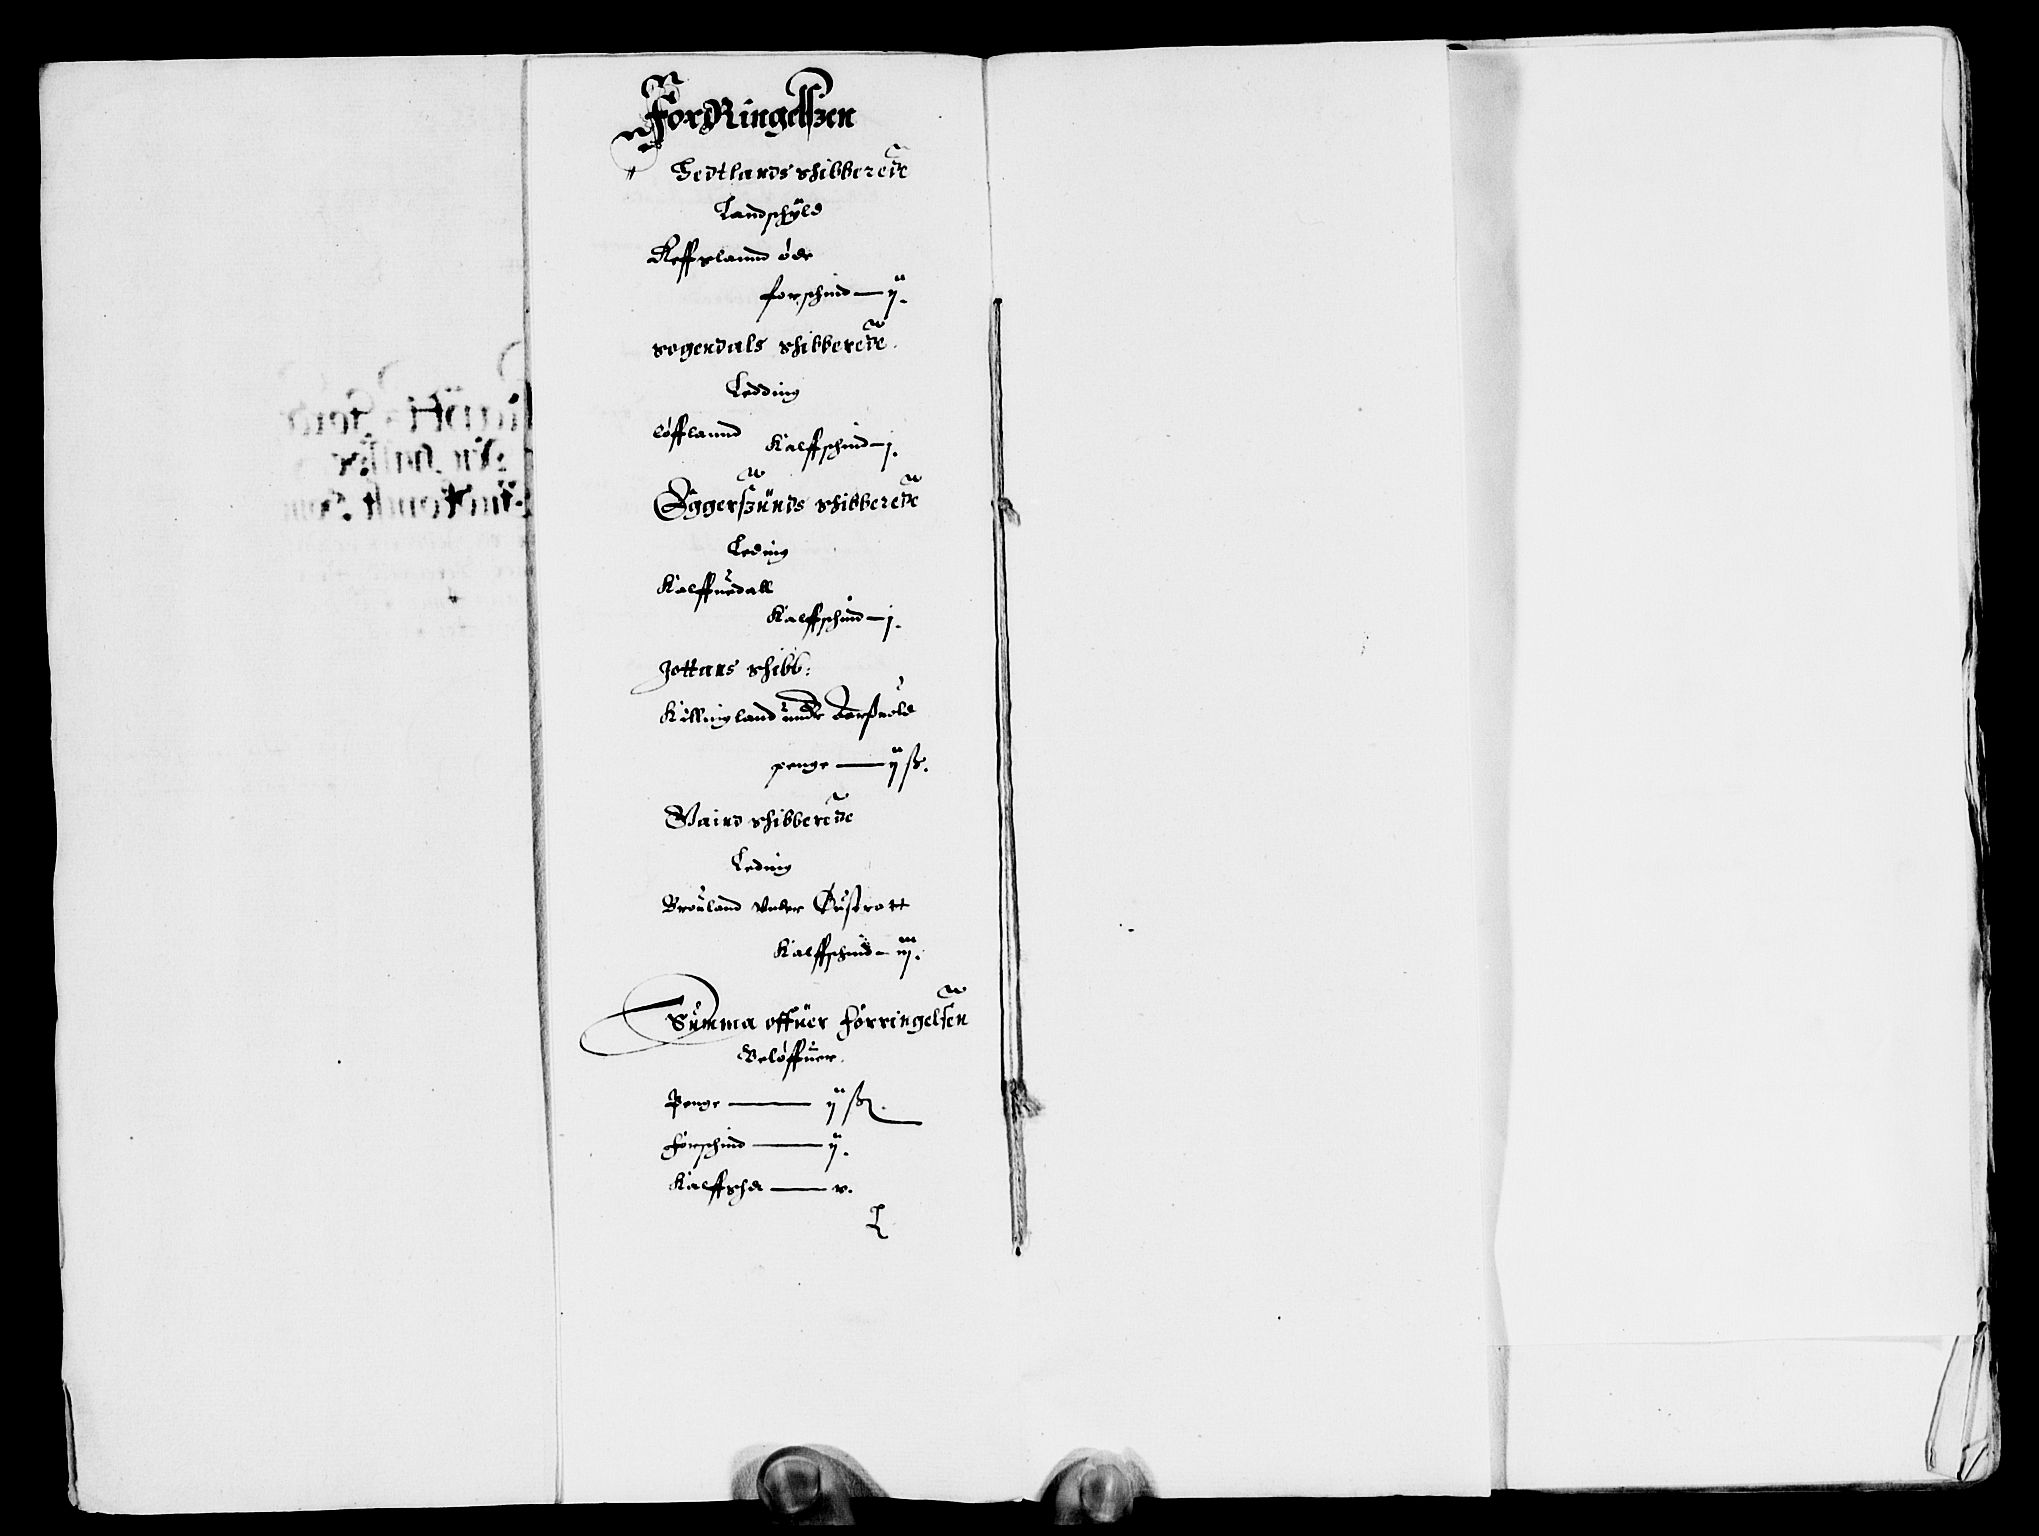 ForRingelszen
Hedtlands schibberede
Landschÿld
Refflaund öde
forschind — ij.
sogendals schibberede.
Ledding
löfflaund
Kalffschind — j.
Eggerszünds schibberede
Leding
Kalffuedall
Kalffschind — j.
Jottans schibb:
Killingland unde
penge — ij ß.
schibberede
Leding
Brouland under
Kalffschind — iij.
Summa offuer forringelsen
Belöffuer.
Penge — ij ß.
forschind — ij.
Kalffsch — v.